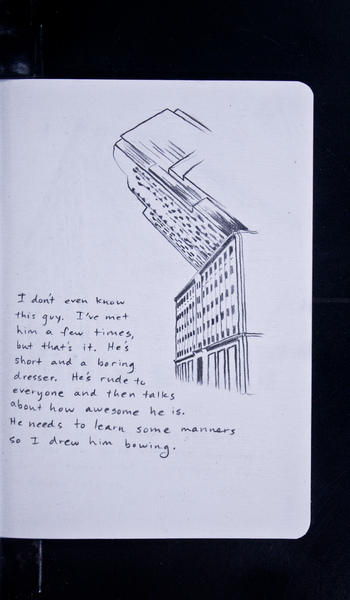 I don't even know
this guy. I've met
him a few times,
but that's it. He's
short and a boring
dresser. He's rude to
everyone and then talks
about how awesome he is.
He needs to learn some manners
so I drew him bowing.